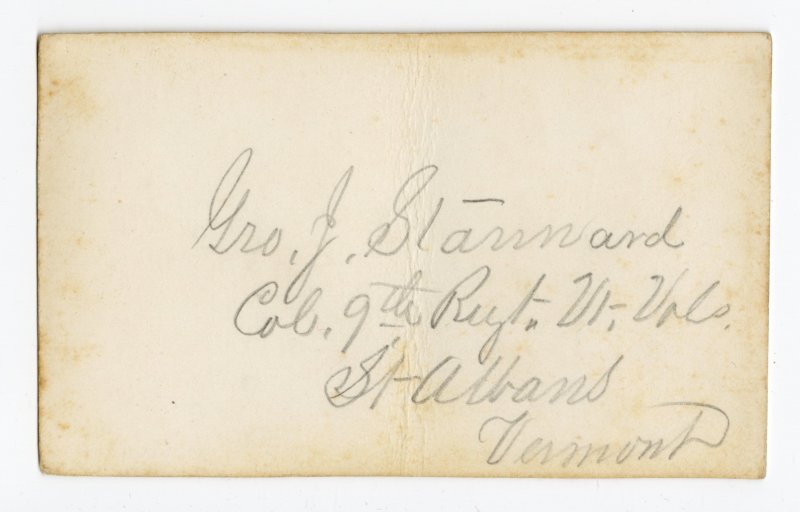 Geo. J. Stannard
Col. 9th Regt. Vt. Vols.
St Albans
Vermont